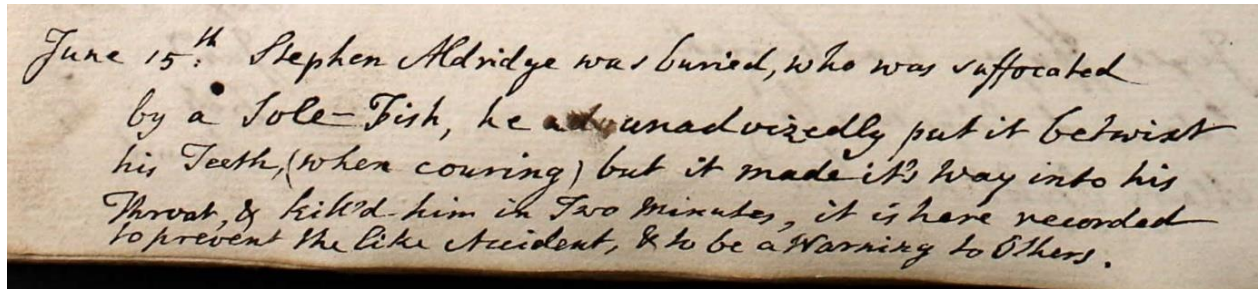 June 15th: Stephen Aldridge was buried, who was suffocated
by a Sole-Fish, he unadvizedly put it betwixt
his Teeth, (when couring) but it made it's Way into his
Throat, & kill'd him in Two Minutes, it is here recorded
to prevent the like Accident, & to be a Warning to Others.